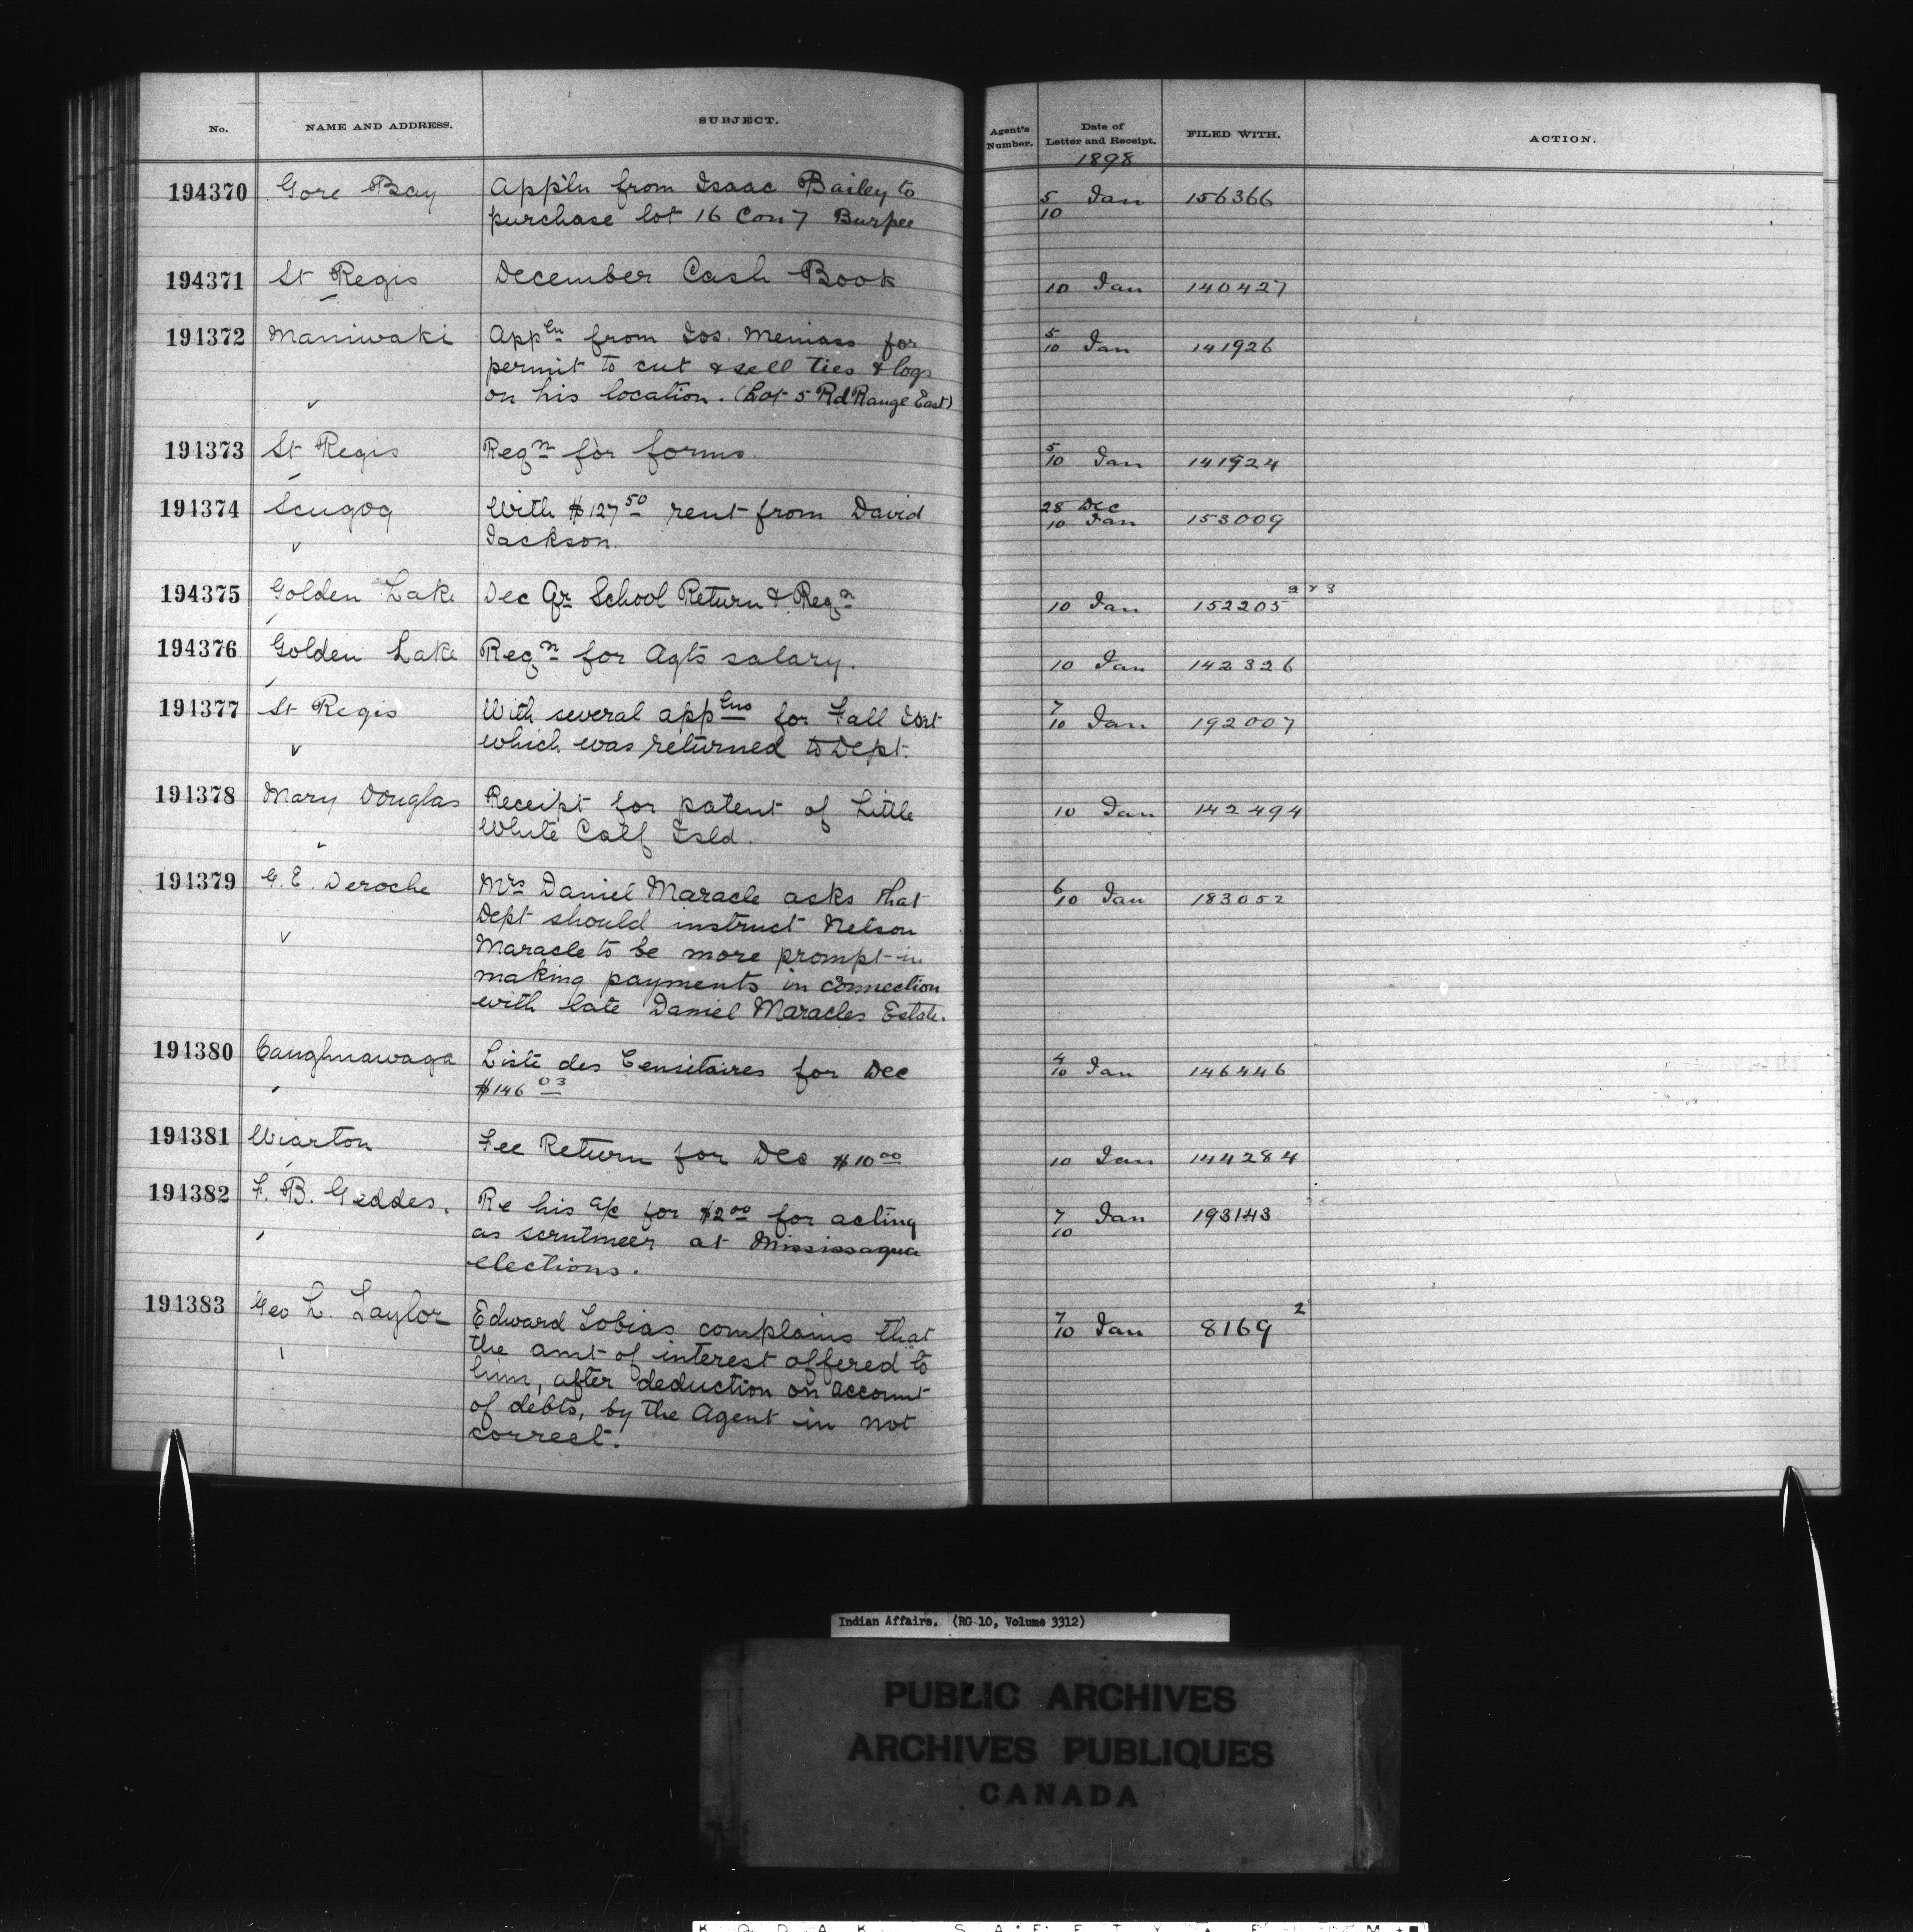 No. NAME AND ADDRESS. SUBJECT. Agent's Number. Date of Letter and Receipt. FILED WITH. ACTION.
1898
194370 Gore Bay App'ln from Isaac Bailey to 5 Jan 156366
purchase lot 16 Con 7 Burpee 10
194371 St Regis December Cash Book 10 Jan 140427
194372 Maniwaki Appln from Jos. Meniass for 5/10 Jan 141926
permit to cut & sell ties & logs
on his location. (Lot 5 Rd Range East)
194373 St Regis Reqn for forms. 5/10 Jan 141924
194374 Scugog With $127 50 rent from David 28 Dec
Jackson. 10 Jan 153009
194375 Golden Lake Dec Qr School Return & Reqn 10 Jan 152205
194376 Golden Lake Reqn for Agts salary. 10 Jan 142326
194377 St Regis With several applns for Fall 7/10 Jan 192007
which was returned to Dept.
194378 Mary Douglas Receipt for patent of Little 10 Jan 142494
White Calf Isld.
194379 G. E. Deroche Mrs Daniel Maracle asks that 6/10 Jan 183052
Dept should instruct Nelson
Maracle to be more prompt in
making payments in connection
with late Daniel Maracles Estate.
194380 Caughnawaga Liste des Censitaires for Dec 4/10 Jan 146446
$146 03
194381 Wiarton Fee Return for Dec $10 00 10 Jan 144284
194382 F. B. Geddes. Re his a/c for $2 00 for acting 7 Jan 193143
as scrutineer at Mississagua 10
elections.
194383 Geo L. Taylor Edward Tobias complains that 7/10 Jan 8169 2
the amt of interest offered to
him, after deduction on account
of debts, by the Agent in not
correct.
Indian Affairs. (RG 10, Volume 3312)
PUBLIC ARCHIVES
ARCHIVES PUBLIQUES
CANADA
KODAK SAFETY FILM